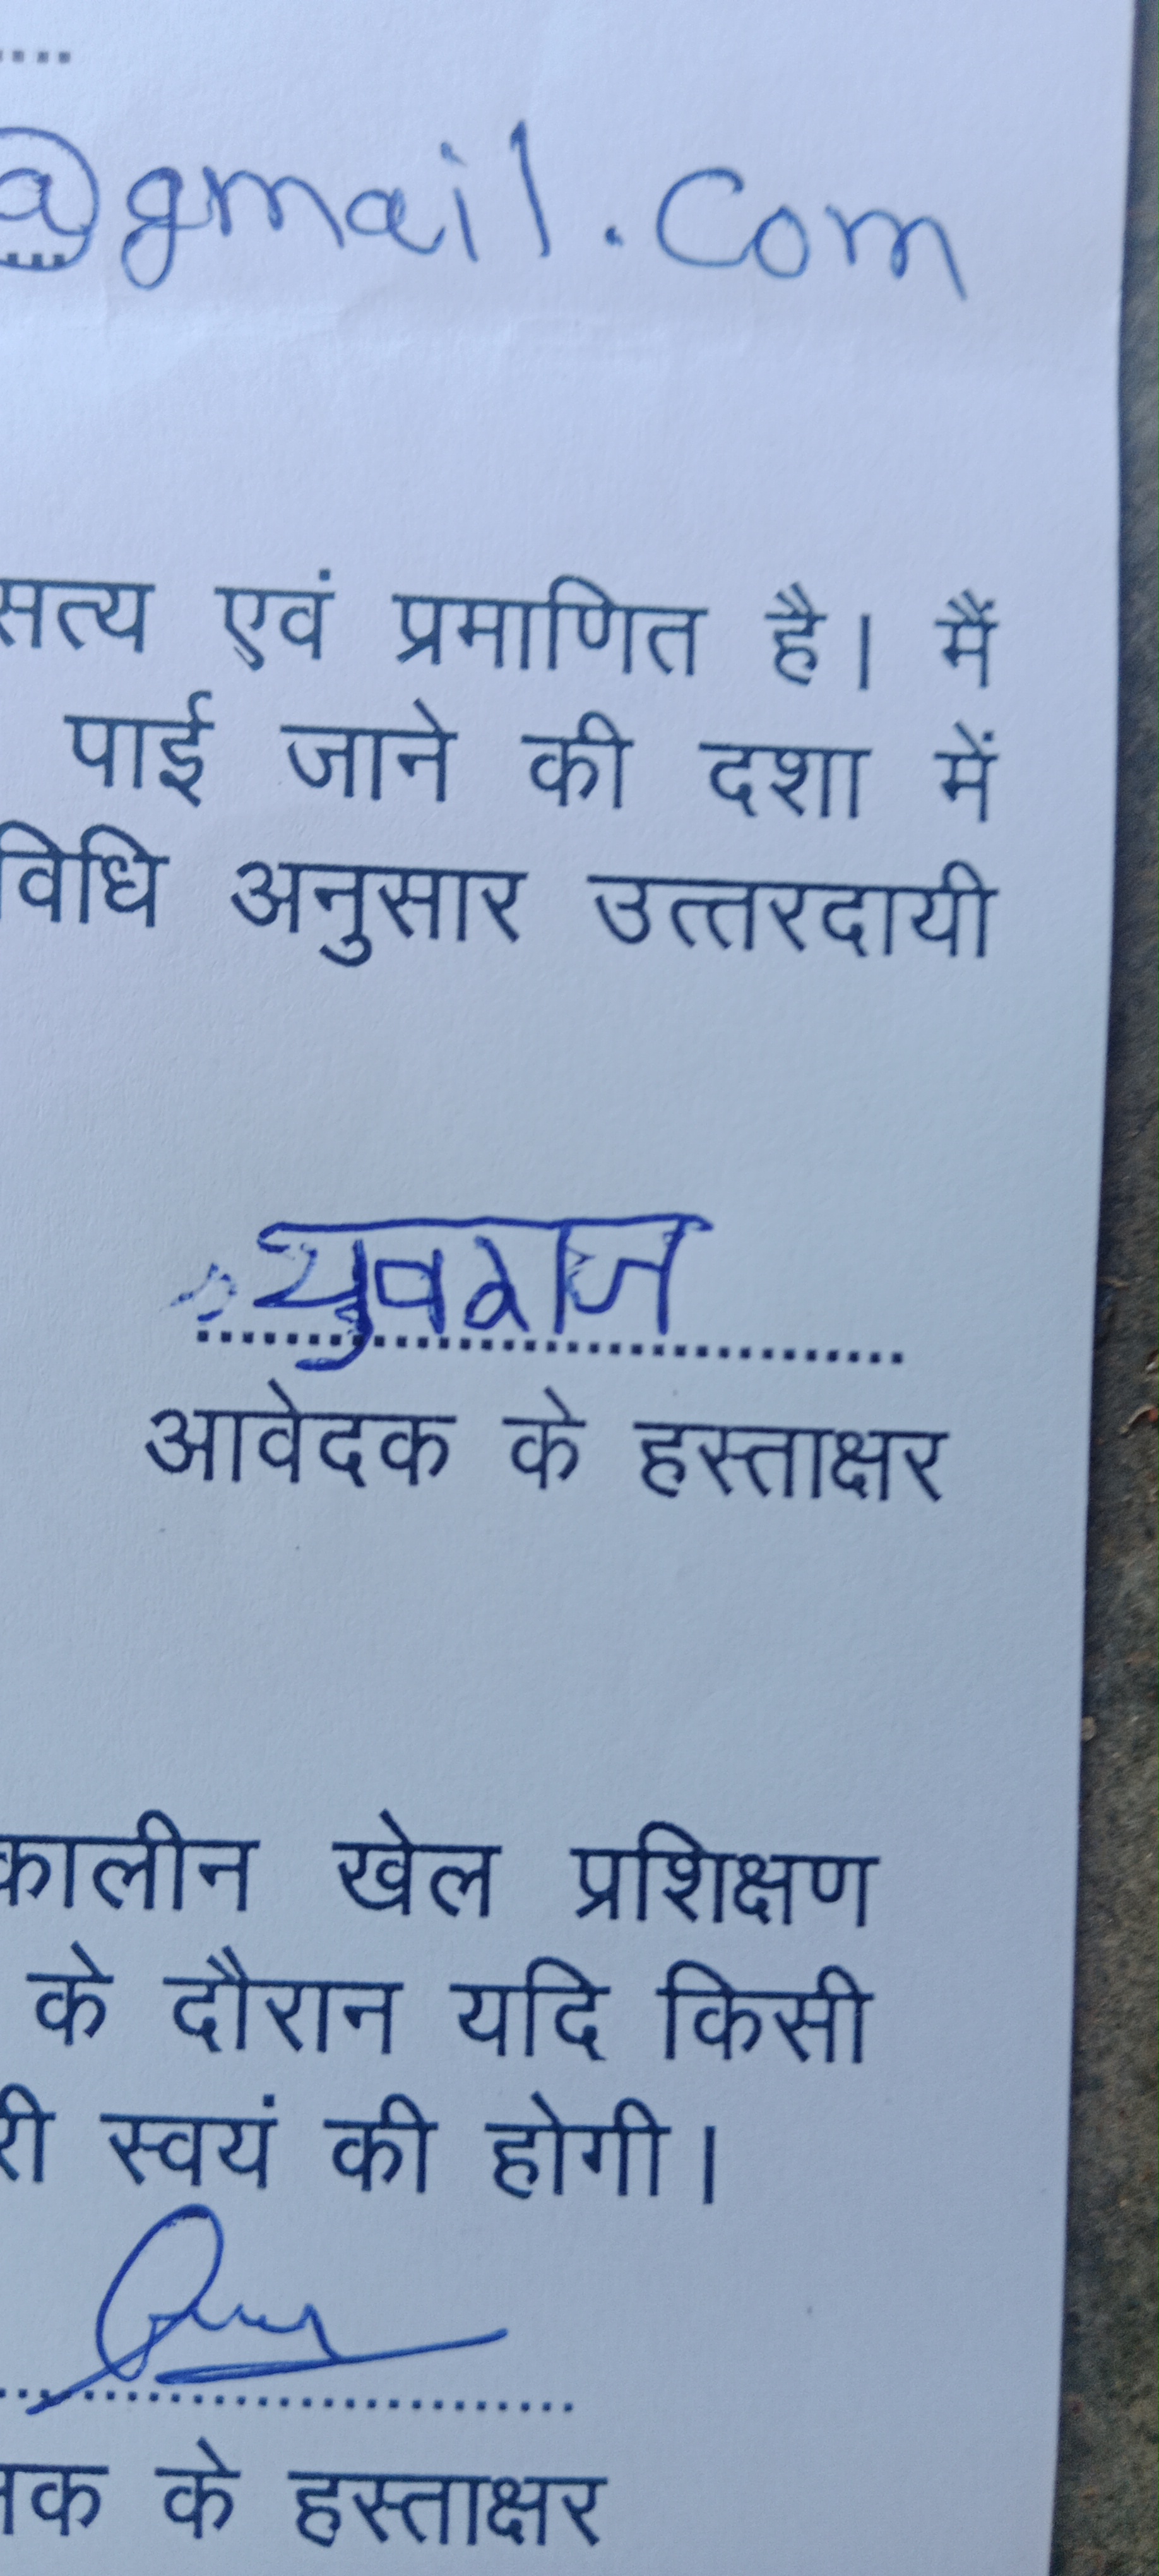 @gmail.com
सत्य एवं प्रमाणित है। मैं
पाई जाने की दशा में
विधि अनुसार उत्तरदायी
युवराज
आवेदक के हस्ताक्षर
कालीन खेल प्रशिक्षण
के दौरान यदि किसी
री स्वयं की होगी।
क के हस्ताक्षर